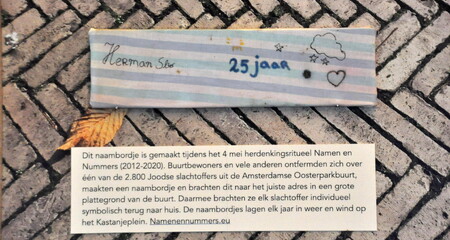 Herman
25 jaar
Dit naambordje is gemaakt tijdens het 4 mei herdenkingsritueel Namen en
Nummers (2012-2020). Buurtbewoners en vele anderen ontfermden zich over
één van de 2.800 Joodse slachtoffers uit de Amsterdamse Oosterparkbuurt,
maakten een naambordje en brachten dit naar het juiste adres in een grote
plattegrond van de buurt. Daarmee brachten ze elk slachtoffer individueel
symbolisch terug naar huis. De naambordjes lagen elk jaar in weer en wind op
het Kastanjeplein. Namenennummers.eu